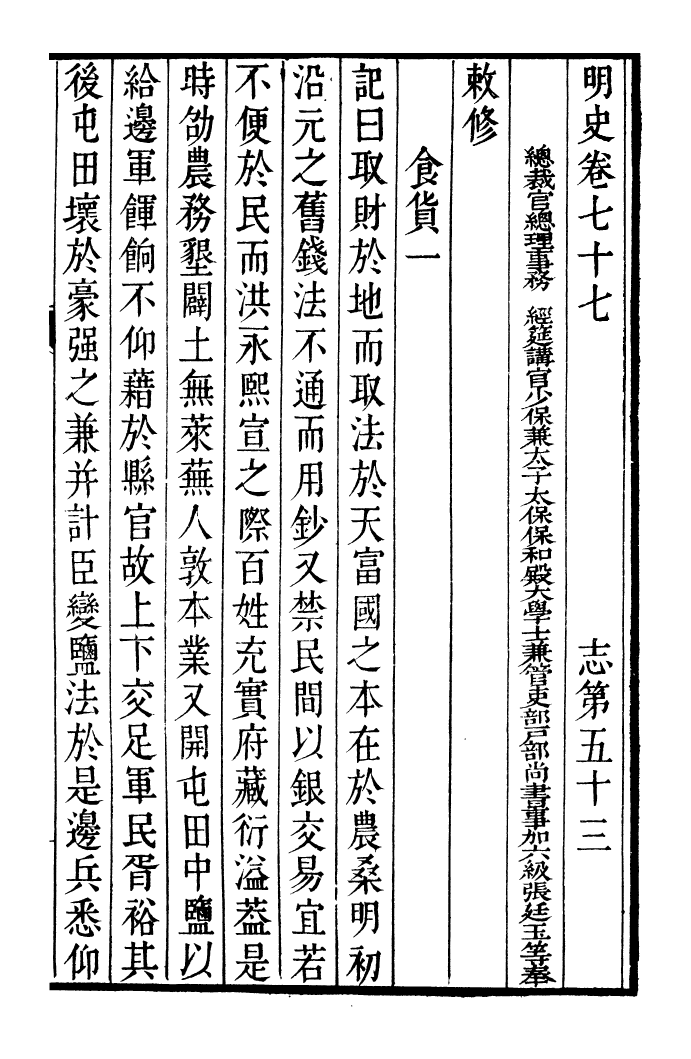 明史卷七十七　志第五十三
總裁官總理事務　經筵講官少保兼太子太保保和殿大學士兼管吏部戶部尚書事加六級張廷玉等奉
敕修
食貨一
記曰取財於地而取法於天富國之本在於農桑明初
沿元之舊錢法不通而用鈔又禁民間以銀交易宜若
不便於民而洪永熙宣之際百姓充實府藏衍溢葢是
時劭農務墾闢土無萊蕪人敦本業又開屯田中鹽以
給邊軍餫餉不仰藉於縣官故上下交足軍民胥裕其
後屯田壞於豪强之兼并計臣變鹽法於是邊兵悉仰